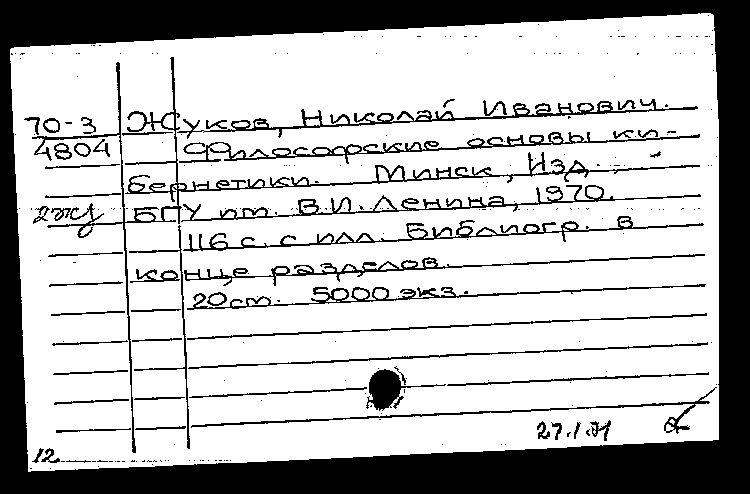 70-3 Жуков, Николай Иванович.
4804 Философские основы ки-
бернетики. Минск, Изд.
2жу БГУ им. В.И. Ленина, 1970.
116 с. с илл. Библиогр. в
конце разделов.
20 см. 5000 экз.
27.I.71
12